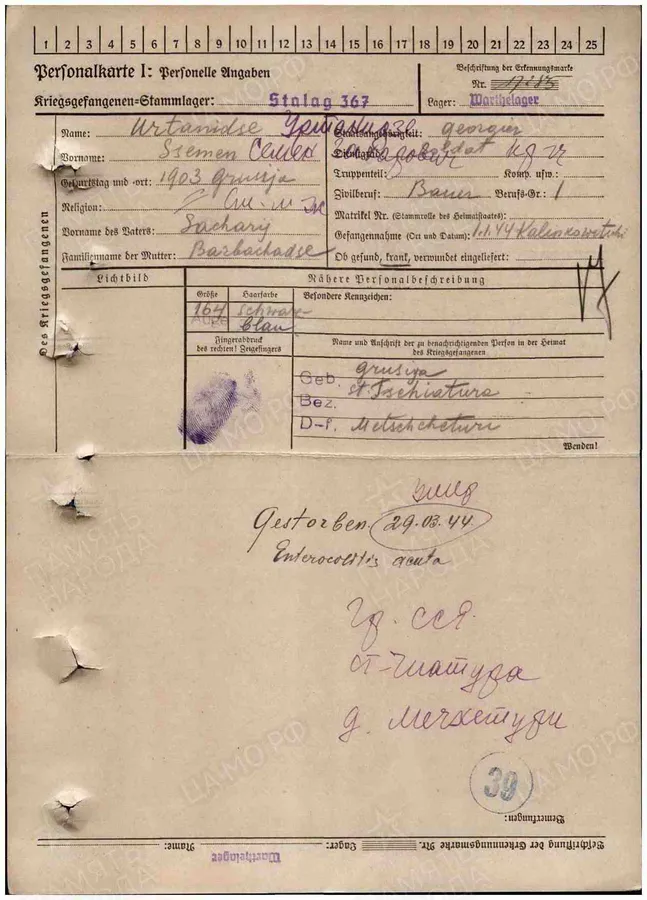 1 2 3 4 5 6 7 8 9 10 11 12 13 14 15 16 17 18 19 20 21 22 23 24 25
Personalkarte I: Personelle Angaben
Beschriftung der Erkennungsmarke
Nr. 17285
Kriegsgefangenen-Stammlager: Stalag 367
Lager: Warthelager
Des Kriegsgefangenen
Name: Urtanidse
Staatsangehörigkeit: georgier
Vorname: Ssemen Семен
Dienstgrad: Soldat
Захарович
Geburtstag und -ort: 1903 Grusija
Truppenteil: Komp. usw.:
Religion:
Zivilberuf: Bauer Berufs-Gr.: 1
Vorname des Vaters: Sachary
Matrikel Nr. (Stammrolle des Heimatstaates):
Familienname der Mutter: Barbachadse
Gefangennahme (Ort und Datum): 1.1.44
Ob gesund, krank, verwundet eingeliefert:
Lichtbild
Nähere Personalbeschreibung
Größe Haarfarbe Besondere Kennzeichen:
164 schwarz
Augen blau
Fingerabdruck
des rechten! Zeigefingers
Name und Anschrift der zu benachrichtigenden Person in der Heimat
des Kriegsgefangenen
Geb. grusija
Bez. st. Tschiatura
D-f. Metschcheturi
Wenden!
Gestorben 29.03.44
Enterocolitis acuta
Гр. ССР.
ст. Чиатура
д. Мечхетури
39
Bemerkungen:
Beschriftung der Erkennungsmarke Nr. Lager: Name:
Warthelager
ЦА МО РФ
ПАМЯТЬ НАРОДА